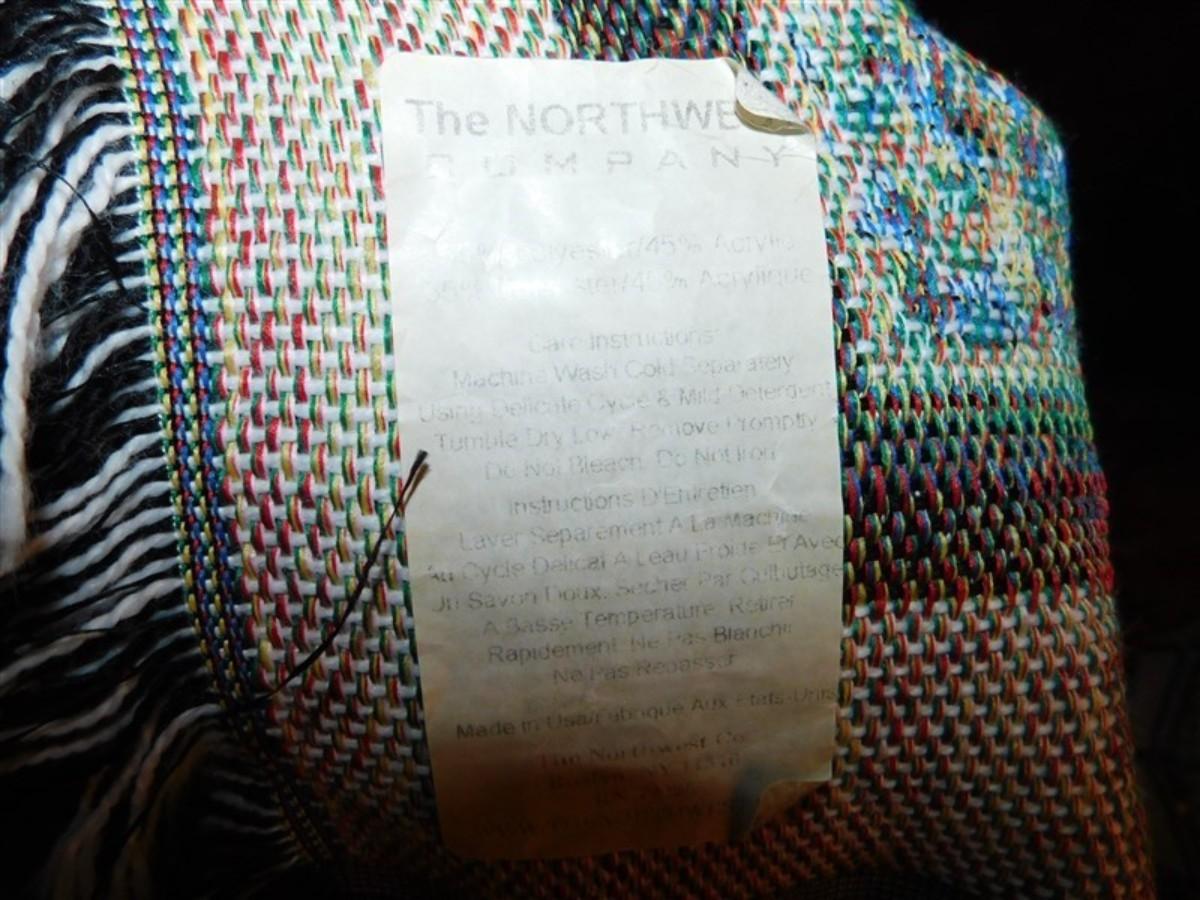 The NORTHWE
COMPANY
Polyester/45% Acrylic
55% Polyester/45% Acrylique
Care Instructions:
Machine Wash Cold Separately
Using Delicate Cycle & Mild Detergent
Tumble Dry Low, Remove Promptly
Do Not Bleach, Do Not Iron
Instructions D'Entretien
Laver Separement A La Machine
Au Cycle Delicat A Leau Froide Et Avec
Un Savon Doux. Secher Par Culbutage
A Basse Temperature. Retirer
Rapidement. Ne Pas Blanchir
Ne Pas Repasser
Made in Usa/Fabrique Aux Etats-Unis
The Northwest Co